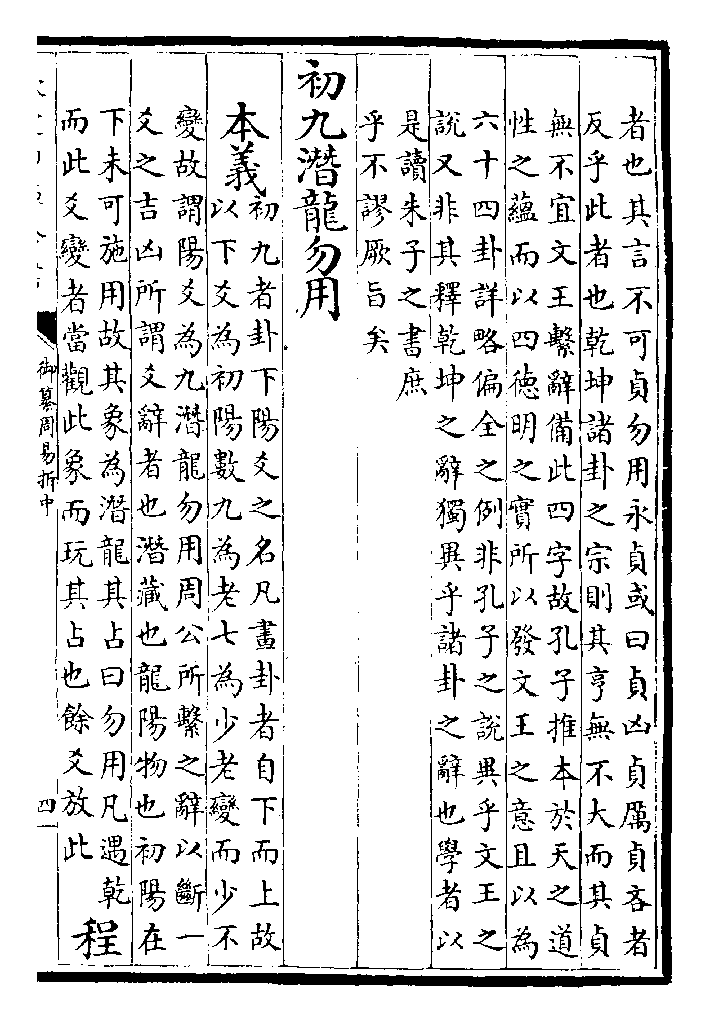 者也其言不可貞勿用永貞或曰貞凶貞厲貞吝者
反乎此者也乾坤諸卦之宗則其亨無不大而其貞
無不宜文王繫辭備此四字故孔子推本於天之道
性之蘊而以四德明之實所以發文王之意且以為
六十四卦詳略偏全之例非孔子之說異乎文王之
說又非其釋乾坤之辭獨異乎諸卦之辭也學者以
是讀朱子之書庶
乎不謬厥旨矣
初九潛龍勿用
本義
初九者卦下陽爻之名凡畫卦者自下而上故
以下爻為初陽數九為老七為少老變而少不
變故謂陽爻為九潛龍勿用周公所繫之辭以斷一
爻之吉凶所謂爻辭者也潛藏也龍陽物也初陽在
下未可施用故其象為潛龍其占曰勿用凡遇乾
而此爻變者當觀此象而玩其占也餘爻放此
程
御纂周易折中
四